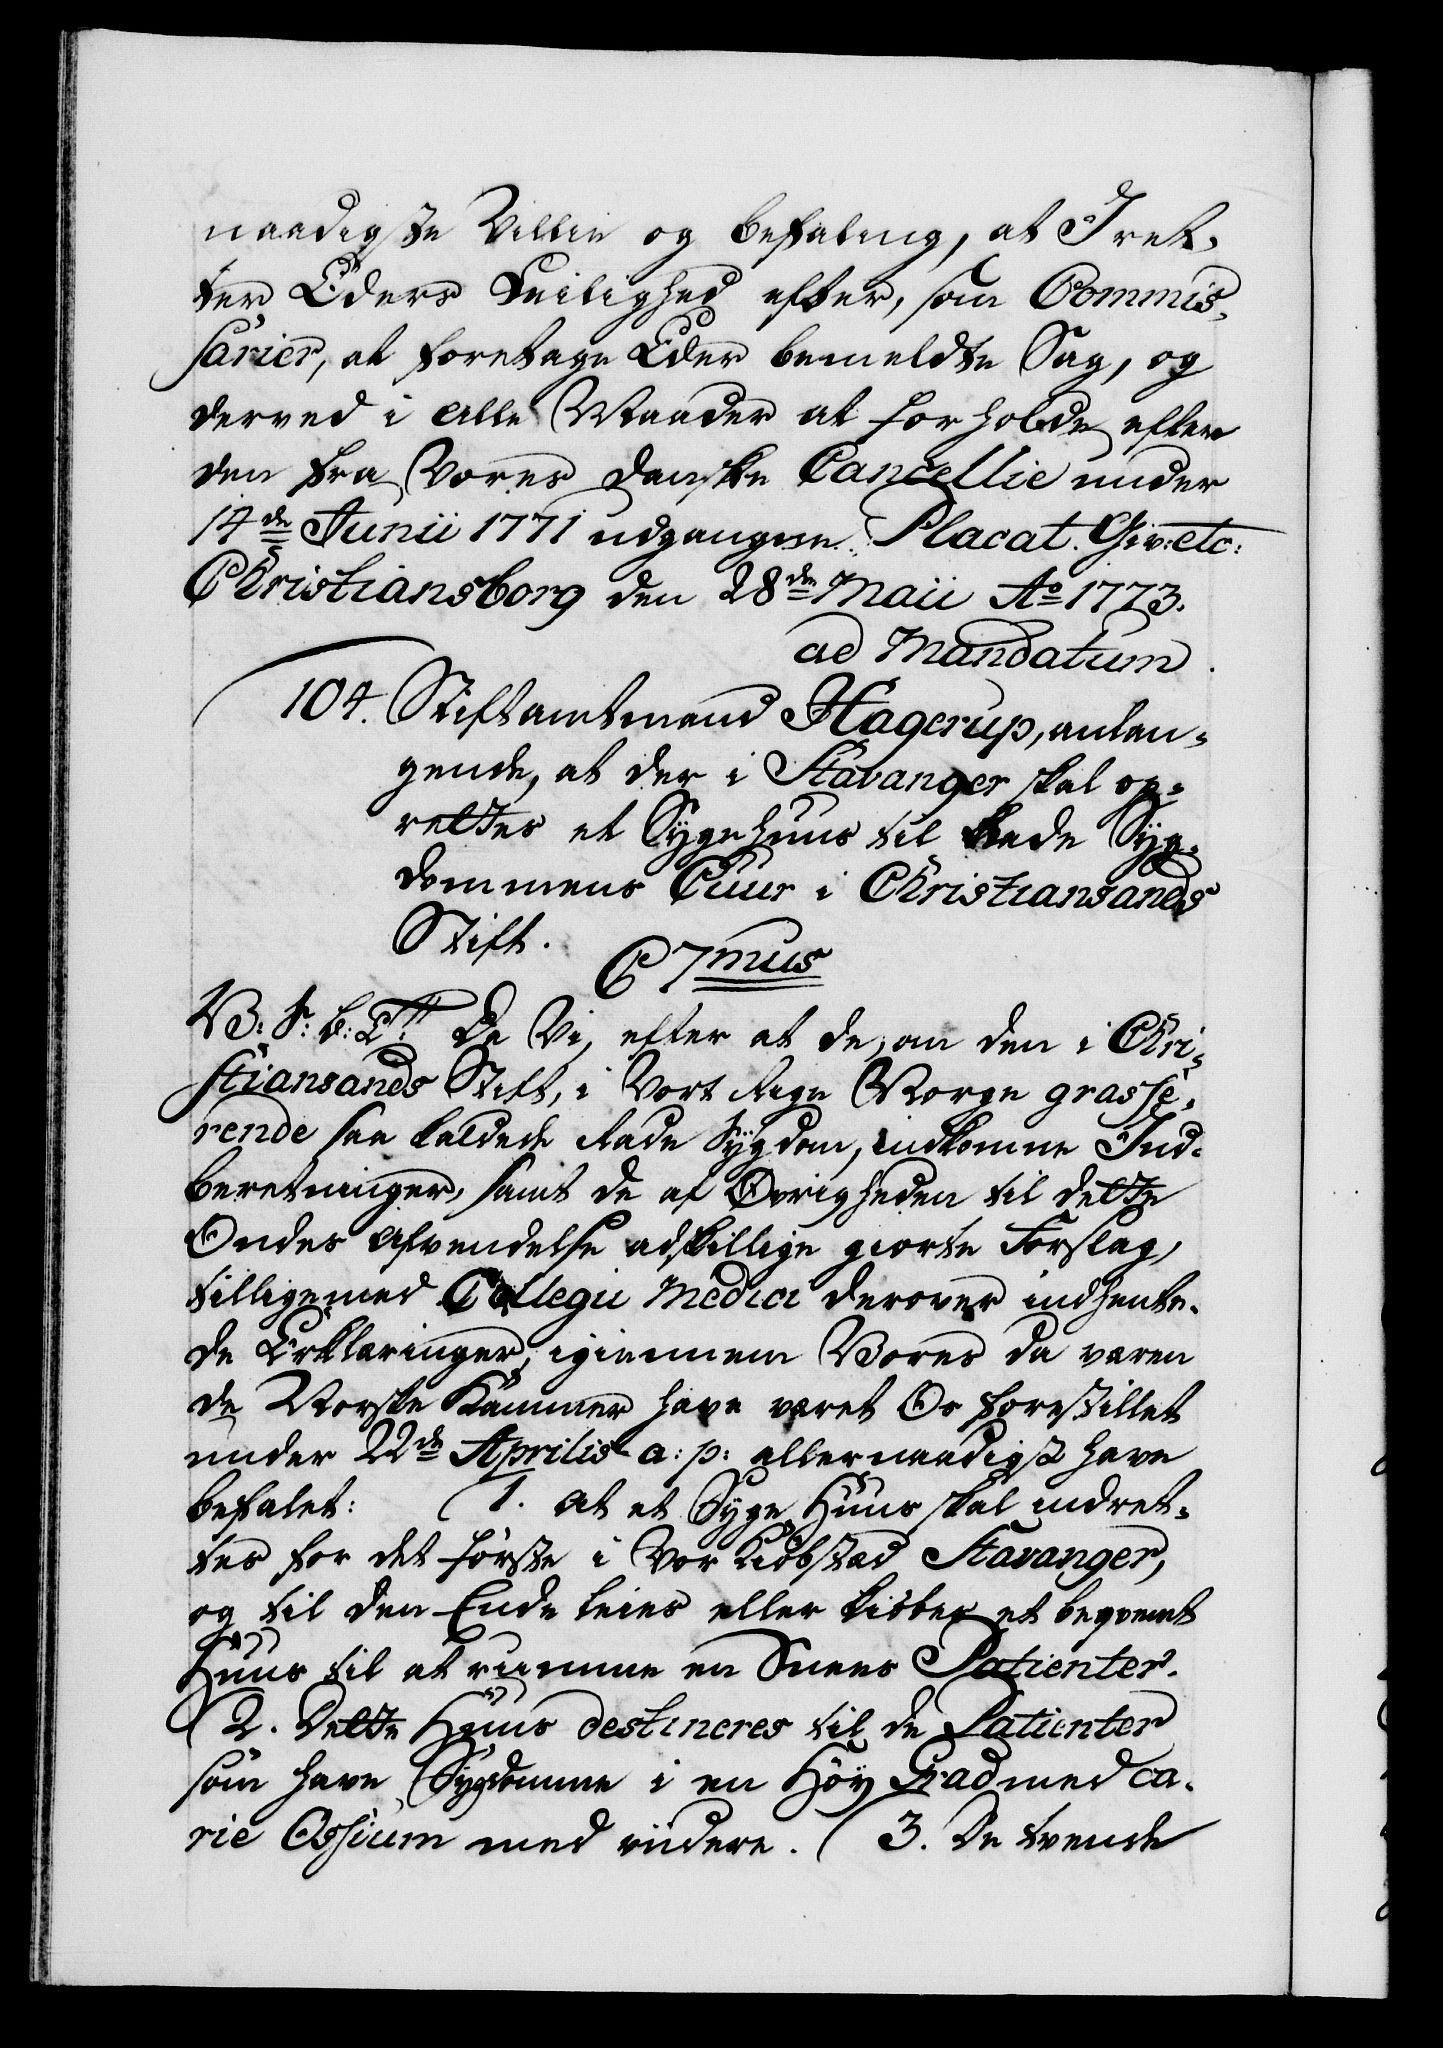 naadigste Villie og befaling, at I ret-
ter Eders Leilighed efter, som Commis-
sarier, at foretage Eder bemeldte Sag, og
derved i alle Maader at forholde efter
den fra Vores danske Cancellie under
14de Junii 1771 udgangne Placat. Giv: etc:
Christiansborg den 28de Maii Ao 1773.
ad Mandatum.
104. Stiftamtmand Hagerup, anlan-
gende, at der i Stavanger skal op-
rettes et Sygehuus til Rade Syg-
dommens Cuur i Christiansands
Stift.
C 7mus
V: S: B: T: Da Vi, efter at de, om den i Chri-
stiansands Stift, i Vort Rige Norge grasse-
rende saa kaldede Rade Sygdom, indkomne Ind-
beretninger, samt de af Øvrigheden til dette
Ondes Afvendelse adskillige giorte Forslag,
tilligemed Collegii Medici derover indhente-
de Erklæringer, igiennem Vores da væren
de Norske Kammer have været Os forestillet
under 22de Aprilis a: p: allernaadigst have
befalet: (1. At et Syge Huus skal indret-
tes for det første i Vor Kiøbstæd Stavanger,
og til den Ende leies eller kiøbes et beqvemt
Huus til at rumme en Snees Patienter.
(2. Dette Huus destineres til de Patienter
som have Sygdomme i en Høy Grad med ca-
rie Ossium med videre. (3. De tvende